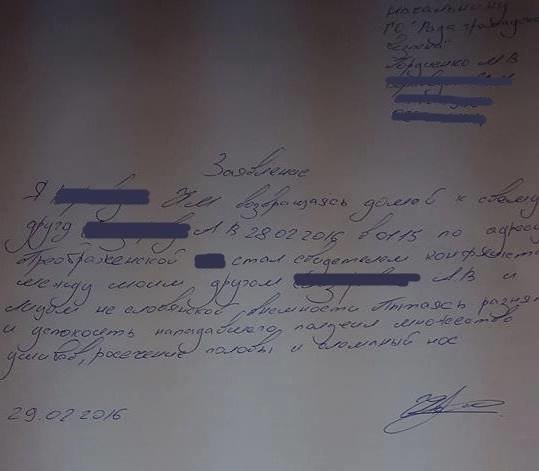 начальнику
ГО "Рада громадської
безпеки"
Гордиенко М В
Заявление
Я НМ возвращаясь домой к своему
другу А В 28.02.2016 в 01.15 по адресу
Преображенской стал свидетелем конфликта
между моим другом АВ и
лицом не словянской внешности. Пытаясь разнять
и успокоить нападавшего получил множество
ушибов, росечение головы и сломаный нос
29.02.2016